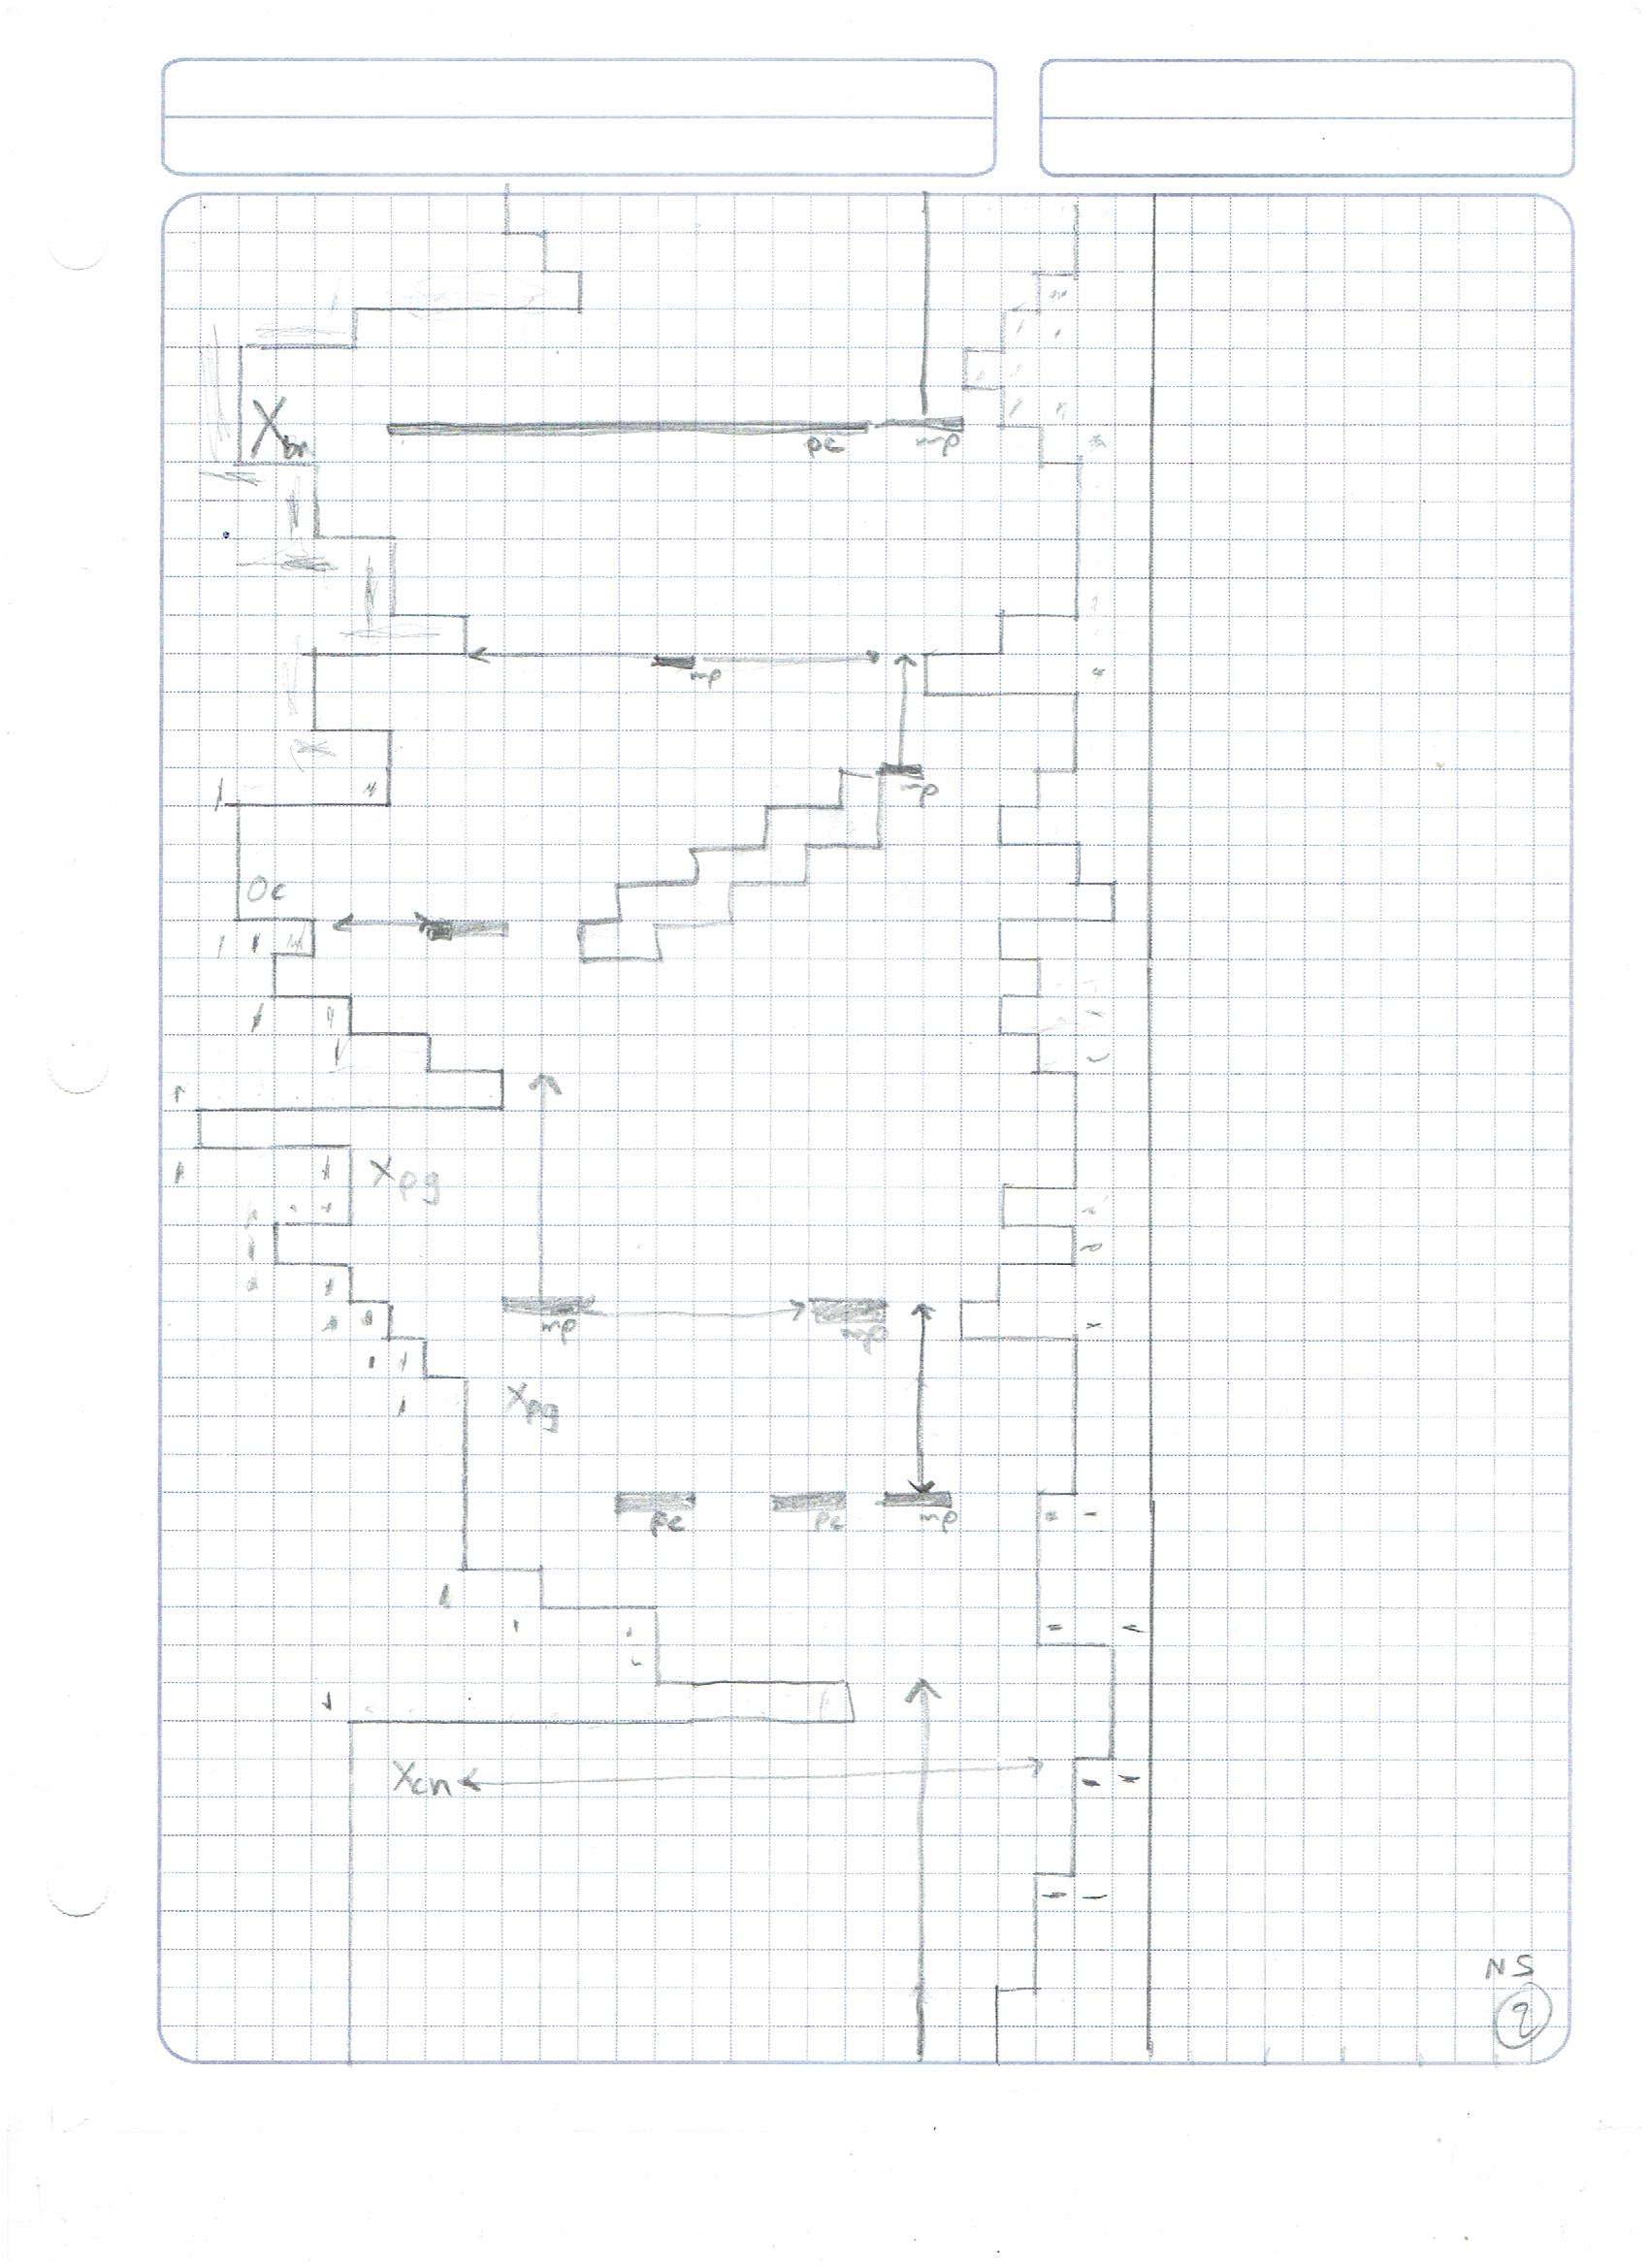 Xbn
pc mp
mp
mp
Oc
Xpg
mp mp
Xpg
pc pc mp
Xcn
NS
2